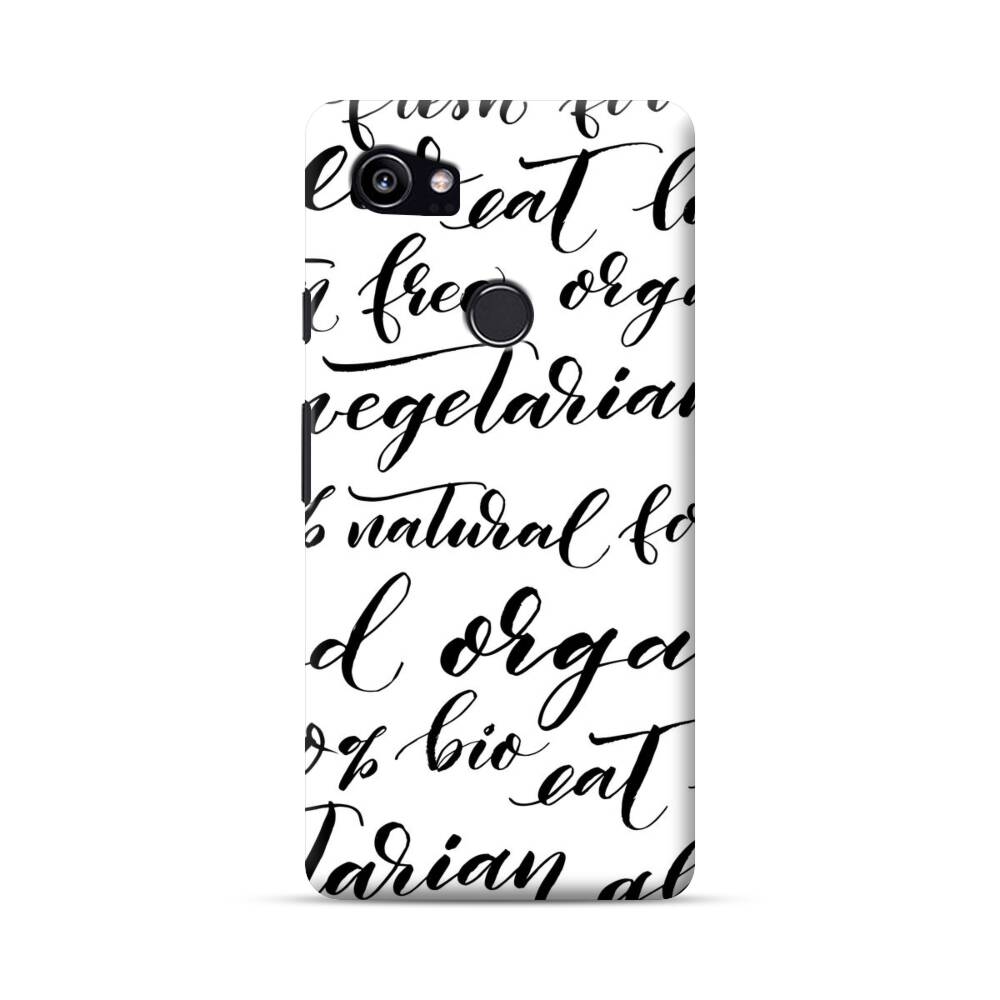 fresh
eat
free orga
vegetarian
% natural fo
d orga
0% bio eat
tarian al